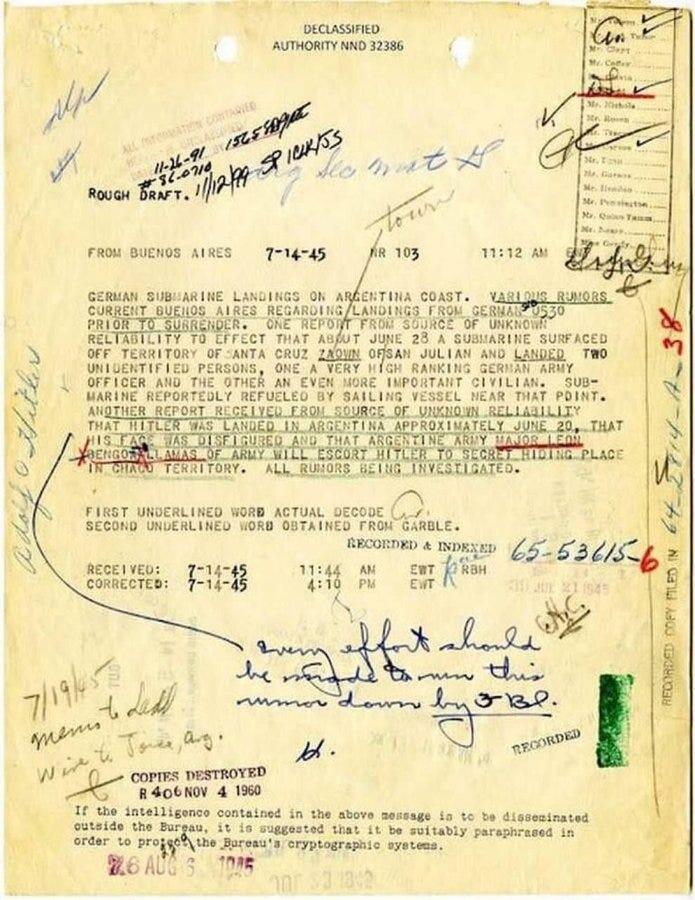 DECLASSIFIED
AUTHORITY NND 32386
Mr. Clegg
Mr. Coffey
Mr. Nichols
Mr. Rosen
Mr. Tracy
Mr. Egan
Mr. Gurnea
Mr. Hendon
Mr. Pennington
Mr. Quinn Tamm
Mr. Nease
Miss Gandy
ALL INFORMATION CONTAINED
11-26-91
#86-0710
ROUGH DRAFT. 11/12/99
town
FROM BUENOS AIRES 7-14-45 NR 103 11:12 AM
GERMAN SUBMARINE LANDINGS ON ARGENTINA COAST. VARIOUS RUMORS
CURRENT BUENOS AIRES REGARDING LANDINGS FROM GERMAN 0530
PRIOR TO SURRENDER. ONE REPORT FROM SOURCE OF UNKNOWN
RELIABILITY TO EFFECT THAT ABOUT JUNE 28 A SUBMARINE SURFACED
OFF TERRITORY OF SANTA CRUZ ZAOWN OFSAN JULIAN AND LANDED TWO
UNIDENTIFIED PERSONS, ONE A VERY HIGH RANKING GERMAN ARMY
OFFICER AND THE OTHER AN EVEN MORE IMPORTANT CIVILIAN. SUB-
MARINE REPORTEDLY REFUELED BY SAILING VESSEL NEAR THAT POINT.
ANOTHER REPORT RECEIVED FROM SOURCE OF UNKNOWN RELIABILITY
THAT HITLER WAS LANDED IN ARGENTINA APPROXIMATELY JUNE 20, THAT
HIS FACE WAS DISFIGURED AND THAT ARGENTINE ARMY MAJOR LEON
BENGOA LLAMAS OF ARMY WILL ESCORT HITLER TO SECRET HIDING PLACE
IN CHACO TERRITORY. ALL RUMORS BEING INVESTIGATED.
Adolf Hitler
FIRST UNDERLINED WORD ACTUAL DECODE
SECOND UNDERLINED WORD OBTAINED FROM GARBLE.
RECORDED & INDEXED 65-53615-6
RECEIVED: 7-14-45 11:44 AM EWT RBH
CORRECTED: 7-14-45 4:10 PM EWT
RECORDED COPY FILED IN 64-2814-A-38
every effort should
be made to run this
rumor down by FBI.
H.
7/19/45
memo to Ladd
Wire to Joice, Arg.
RECORDED
COPIES DESTROYED
R 406 NOV 4 1960
If the intelligence contained in the above message is to be disseminated
outside the Bureau, it is suggested that it be suitably paraphrased in
order to protect the Bureau's cryptographic systems.
AUG 6 1945